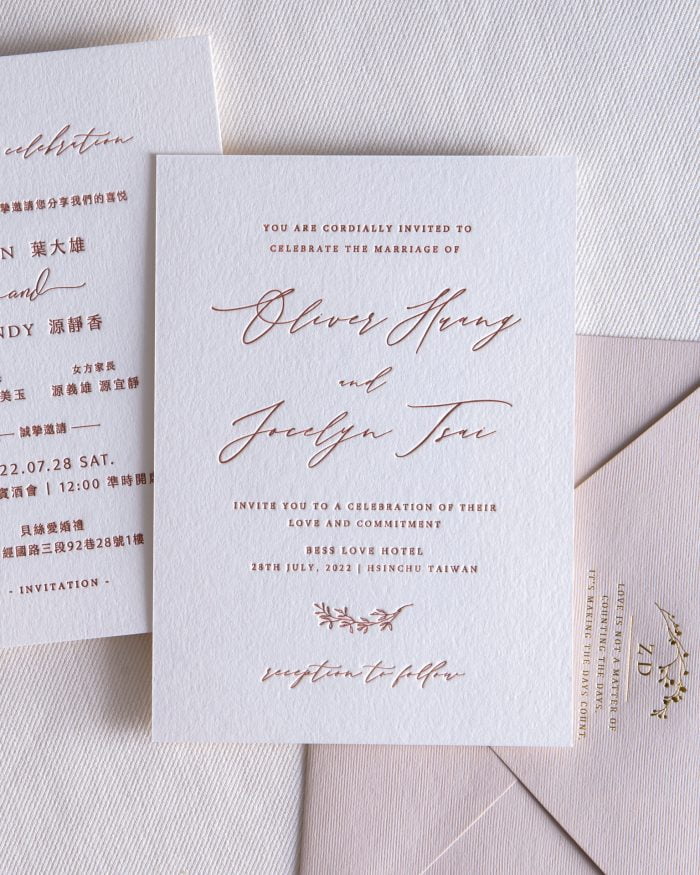 celebration
摯邀請您分享我們的喜悅
N 葉大雄
and
NDY 源靜香
女方家長
美玉 源義雄 源宜靜
誠摯邀請
22.07.28 SAT.
賓酒會 | 12:00 準時開席
貝絲愛婚禮
經國路三段92巷28號1樓
- INVITATION -
YOU ARE CORDIALLY INVITED TO
CELEBRATE THE MARRIAGE OF
Oliver Huang
and
Jocelyn Tsai
INVITE YOU TO A CELEBRATION OF THEIR
LOVE AND COMMITMENT
BESS LOVE HOTEL
28TH JULY, 2022 | HSINCHU TAIWAN
reception to follow
ZD
LOVE IS NOT A MATTER OF
COUNTING THE DAYS.
IT'S MAKING THE DAYS COUNT.